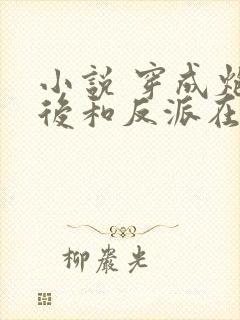 小說 穿成
後和反派在
柳巖光